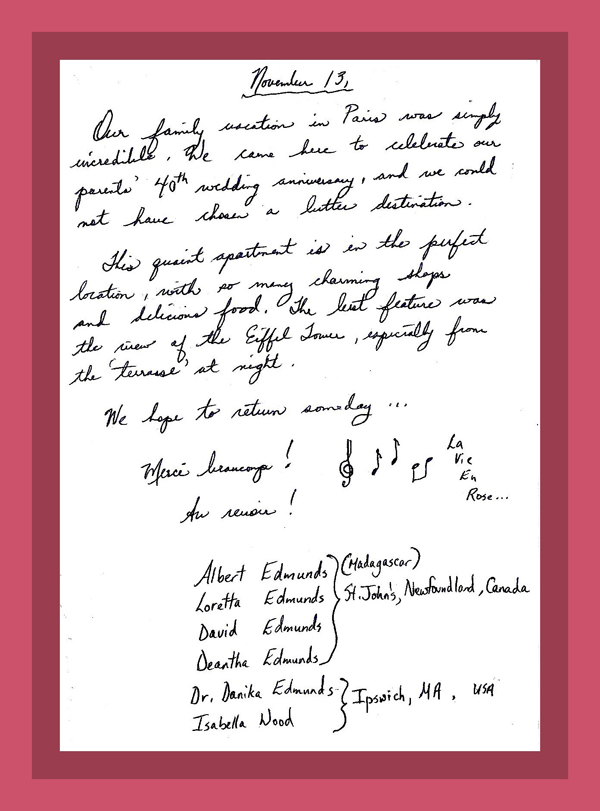 November 13,
Our family vacation in Paris was simply
incredible. We came here to celebrate our
parents' 40th wedding anniversary, and we could
not have chosen a better destination.
This quaint apartment is in the perfect
location, with so many charming shops
and delicious food. The best feature was
the view of the Eiffel Tower, especially from
the 'terrasse' at night.
We hope to return someday ...
Merci beaucoup!
Au revoir!
La
Vie
En
Rose...
Albert Edmunds (Madagascar)
Loretta Edmunds St. John's, Newfoundland, Canada
David Edmunds
Deantha Edmunds
Dr. Danika Edmunds Ipswich, MA, USA
Isabella Wood